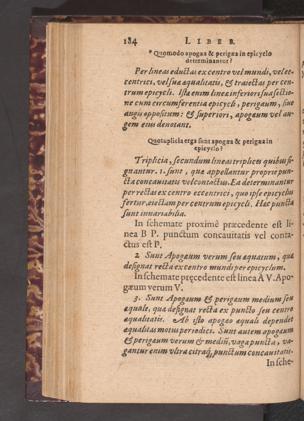 184 LIBER
* Quomodo apogæa & perigæa in epicyclo
determinantur?
Per lineas eductas ex centro vel mundi, vel ec-
centrici, vel suæ æqualitatis, & traiectas per cen-
trum epicycli. Ista enim linea inferiori suæ sectio-
ne cum circumferentia epicycli, perigæum, siue
augis oppositum: & superiori, apogæum vel au-
gem eius denotant.
Quotuplicia ergo sunt apogæa & perigæa in
epicyclo?
Triplicia, secundum lineas triplices quibus si-
gnantur. 1. sunt, quæ appellantur proprie pun-
cta concauitatis vel contactus. Ea determinantur
per rectas ex centro eccentrici, quo ipse epicyclus
fertur, eiectam per centrum epicycli. Hæc puncta
sunt inuariabilia.
In schemate proximè præcedente est li-
nea B P. punctum concauitatis vel conta-
ctus est P.
2 Sunt Apogæum verum seu æquatum, quæ
designat recta ex centro mundi per epicyclum.
In schemate præcedente est linea A V. Apo-
gæum verum V.
3. Sunt Apogæum & perigæum medium seu
æquale, quæ designat recta ex puncto seu centro
æqualitatis. Ab isto apogæo æquali dependet
æqualitas motus periodici. Sunt autem apogæum
& perigæum verum & mediũ, vaga puncta, va-
gantur enim vltra citraq; punctum concauitatis.
In sche-